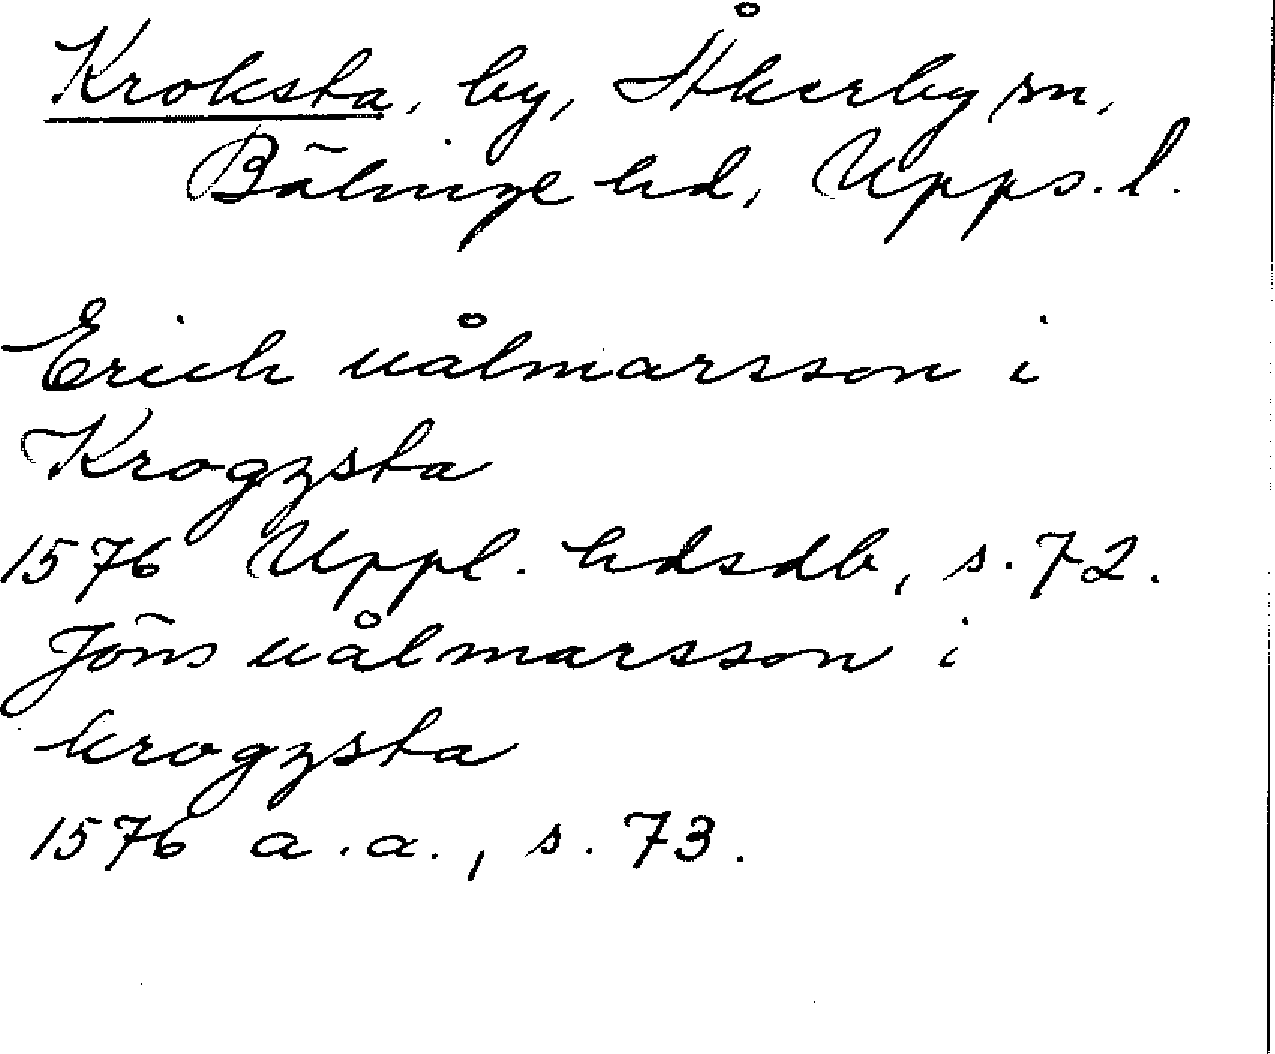 Kroksta, by, Åkerby sn,
Bälinge hd, Upps. l.
Erich uålmarsson i
Krogzsta
1576 Uppl. hdsdb, s. 72.
Jöns uålmarsson i
krogzsta
1576 a. a., s. 73.